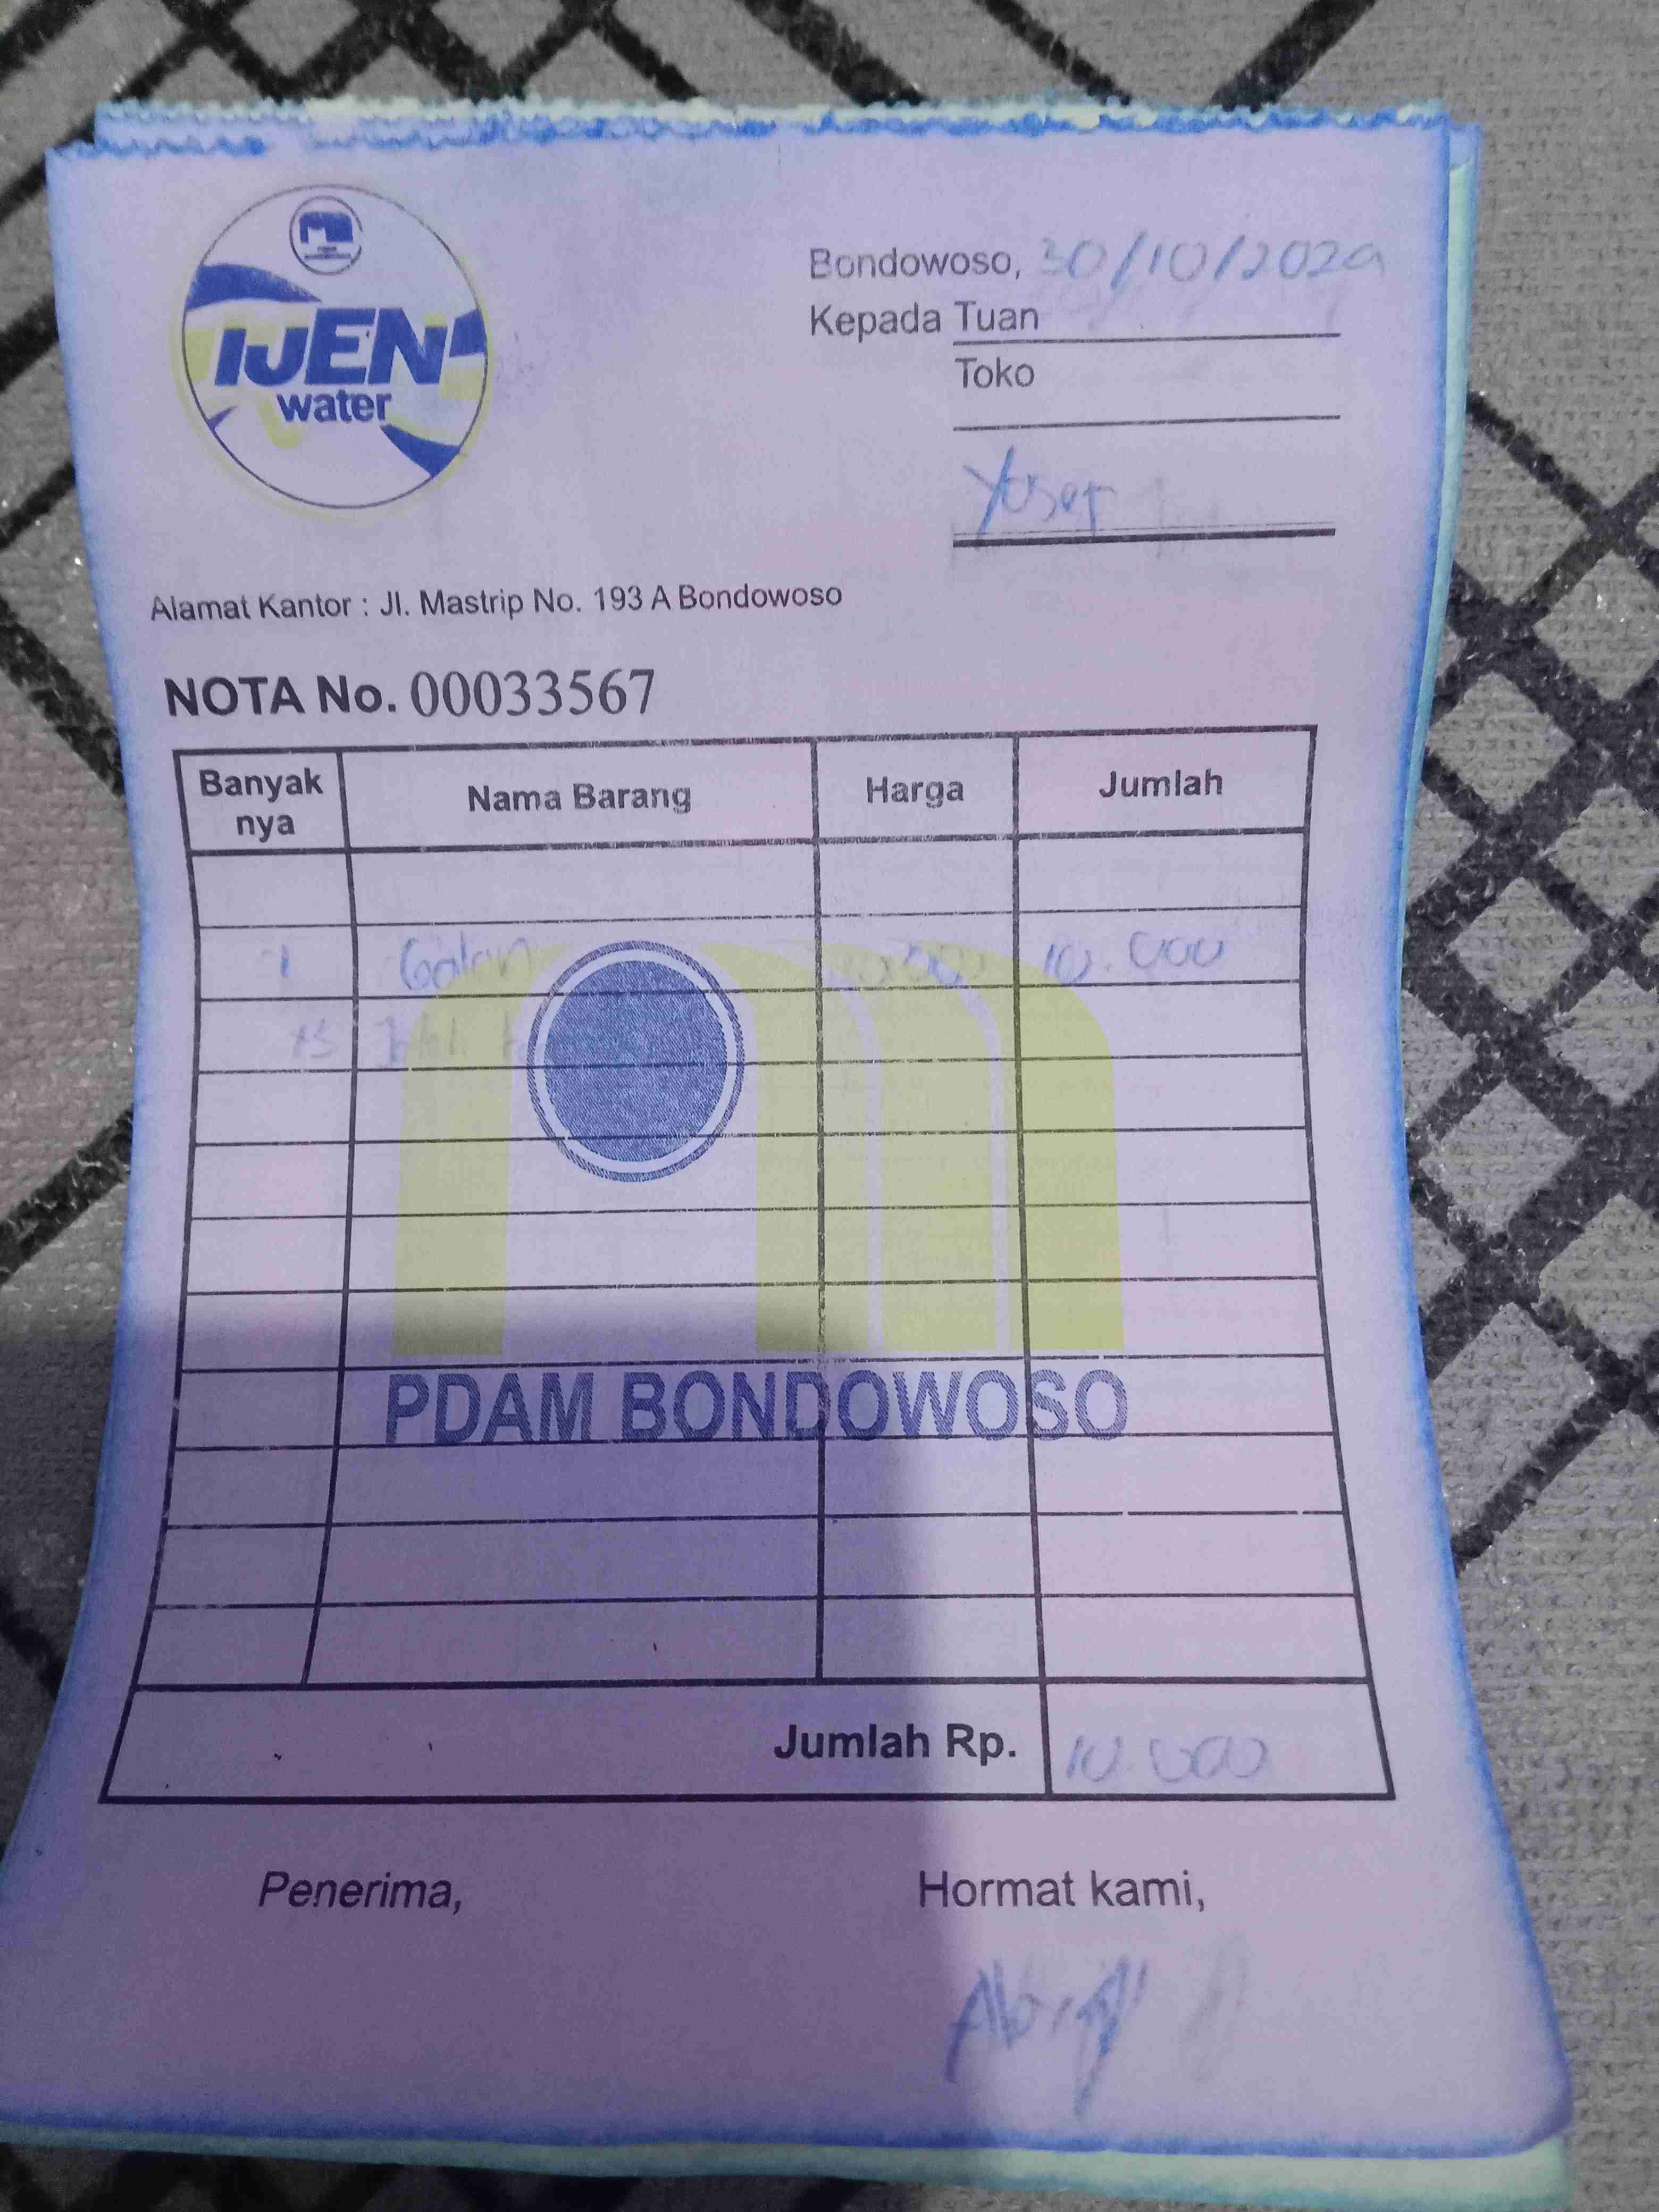 IJEN
water
Bondowoso, 30/10/2024
Kepada Tuan
Toko
Yosef
Alamat Kantor : Jl. Mastrip No. 193 A Bondowoso
NOTA No. 00033567
Banyak nya Nama Barang Harga Jumlah
1 Galon 10.000 10.000
PDAM BONDOWOSO
Jumlah Rp. 10.000
Penerima, Hormat kami,